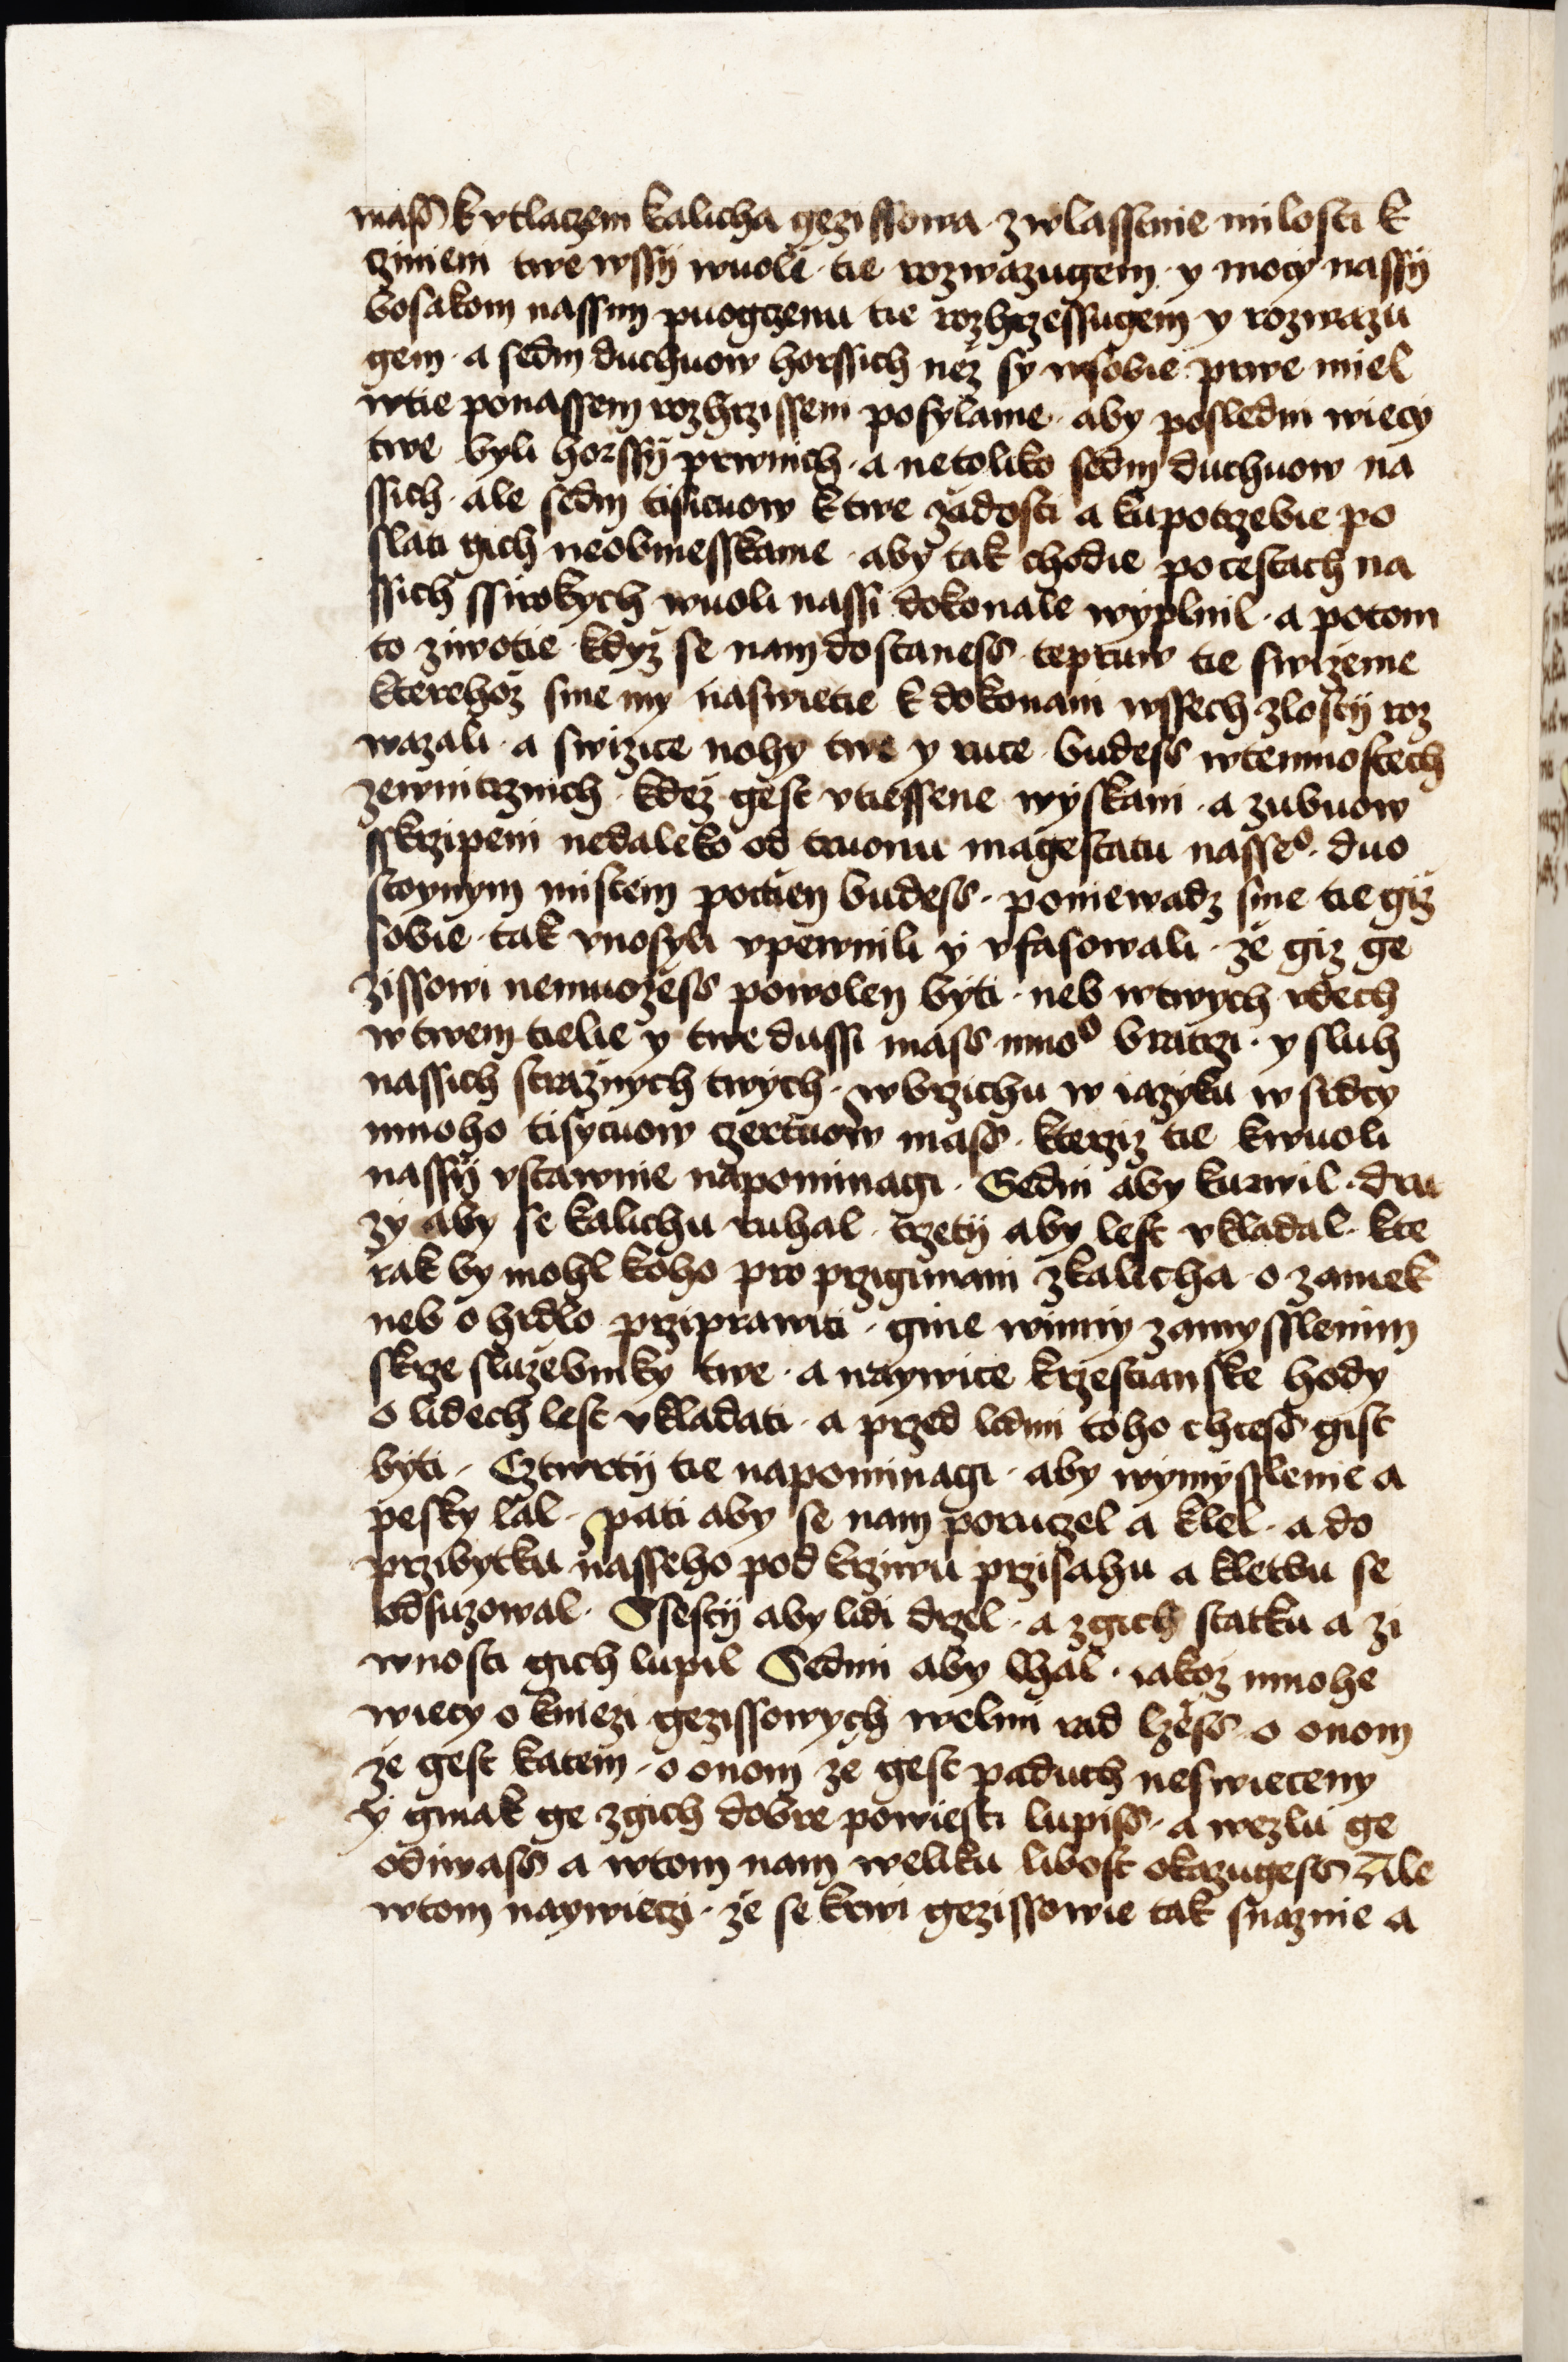 mass k vtlaczeni kalicha gezissowa · zwlasstnie milosti k
czinieni twe wssij wuoli · tie rozwazugem · y mocy nassij
bosakom nassim puogczenu tie rozhrzessugem y rozwazu
gem · a sedm duchuow horssich nez sy wsobie prwe miel
wtie ponassem rozhrzisseni posylame · aby posledni wiecy
twe byli horssij prwnich · a netoliko sedm duchuow na
ssich · ale sedm tisicuow k twe zadosti a kupotrzebie po
slati gich neobmesskame · aby tak chodie pocestach na
ssich ssirokych wuoli nassi dokonale wyplnil · a potom
to ziwotie · kdyz se nam dostaness · tepruw tie swizeme
kterehoz sme my naswietie k dokonani wssech zlostij roz
wazali · a swizice nohy twe y ruce · budess wtemnostech
zewnitrznich · kdez gest vtiessene wyskani · a zubuow
sskrzipeni nedaleko od truonu magestatu nasse° · duo
stoynym mistem poctien budess · poniewadz sme tie giz
sobie · tak vnosyli vpewnili y vfasowali · ze giz ge
zissowi nemuozess powolen byti · neb wtwych vdech
w twem tielie y twe dussi mass mno° bratrzi · y sluh
nassich straznych twych · wbrzichu w iazyku w srdcy
mnoho tisycuow czertuow mass · kterziz tie kwuoli
nassij vstawnie napominagi · Gedni aby kurwil · dru
zy aby se kalichu ruhal · trzetij aby lest vkladal · kte
rak by mohl koho pro przigimani zkalicha · o zamek
neb o hrdlo prziprawiti · gine winniy zamysslenim
skrze sluzebniky twe · a naywice krzestianske hody
o lidech lest vkladati · a przed lidmi toho chtess gist
byti · Cztwrtij tie napominagi · aby wymysslenie a
pesky lal · pati aby se nam poruczel a klel · a do
przibytku nasseho pod krziwu przisahu a kletbu se
odsuzowal · Ssestij aby lidi drzel · a zgich statku a zi
wnosti gich lupil Sedmi aby lhal · iakoz mnohe
wiecy o kniezi gezissowych welmi rad lzess · o onom
ze gest katem · o onom ze gest paduch neswieceny
y ginak ge zgich dobre powiesti lupiss · a wezlu ge
odiwass a wtom nam weliku libost okazugess Ale
wtom naywieczi · ze se krwi gezissowie tak snaznie a